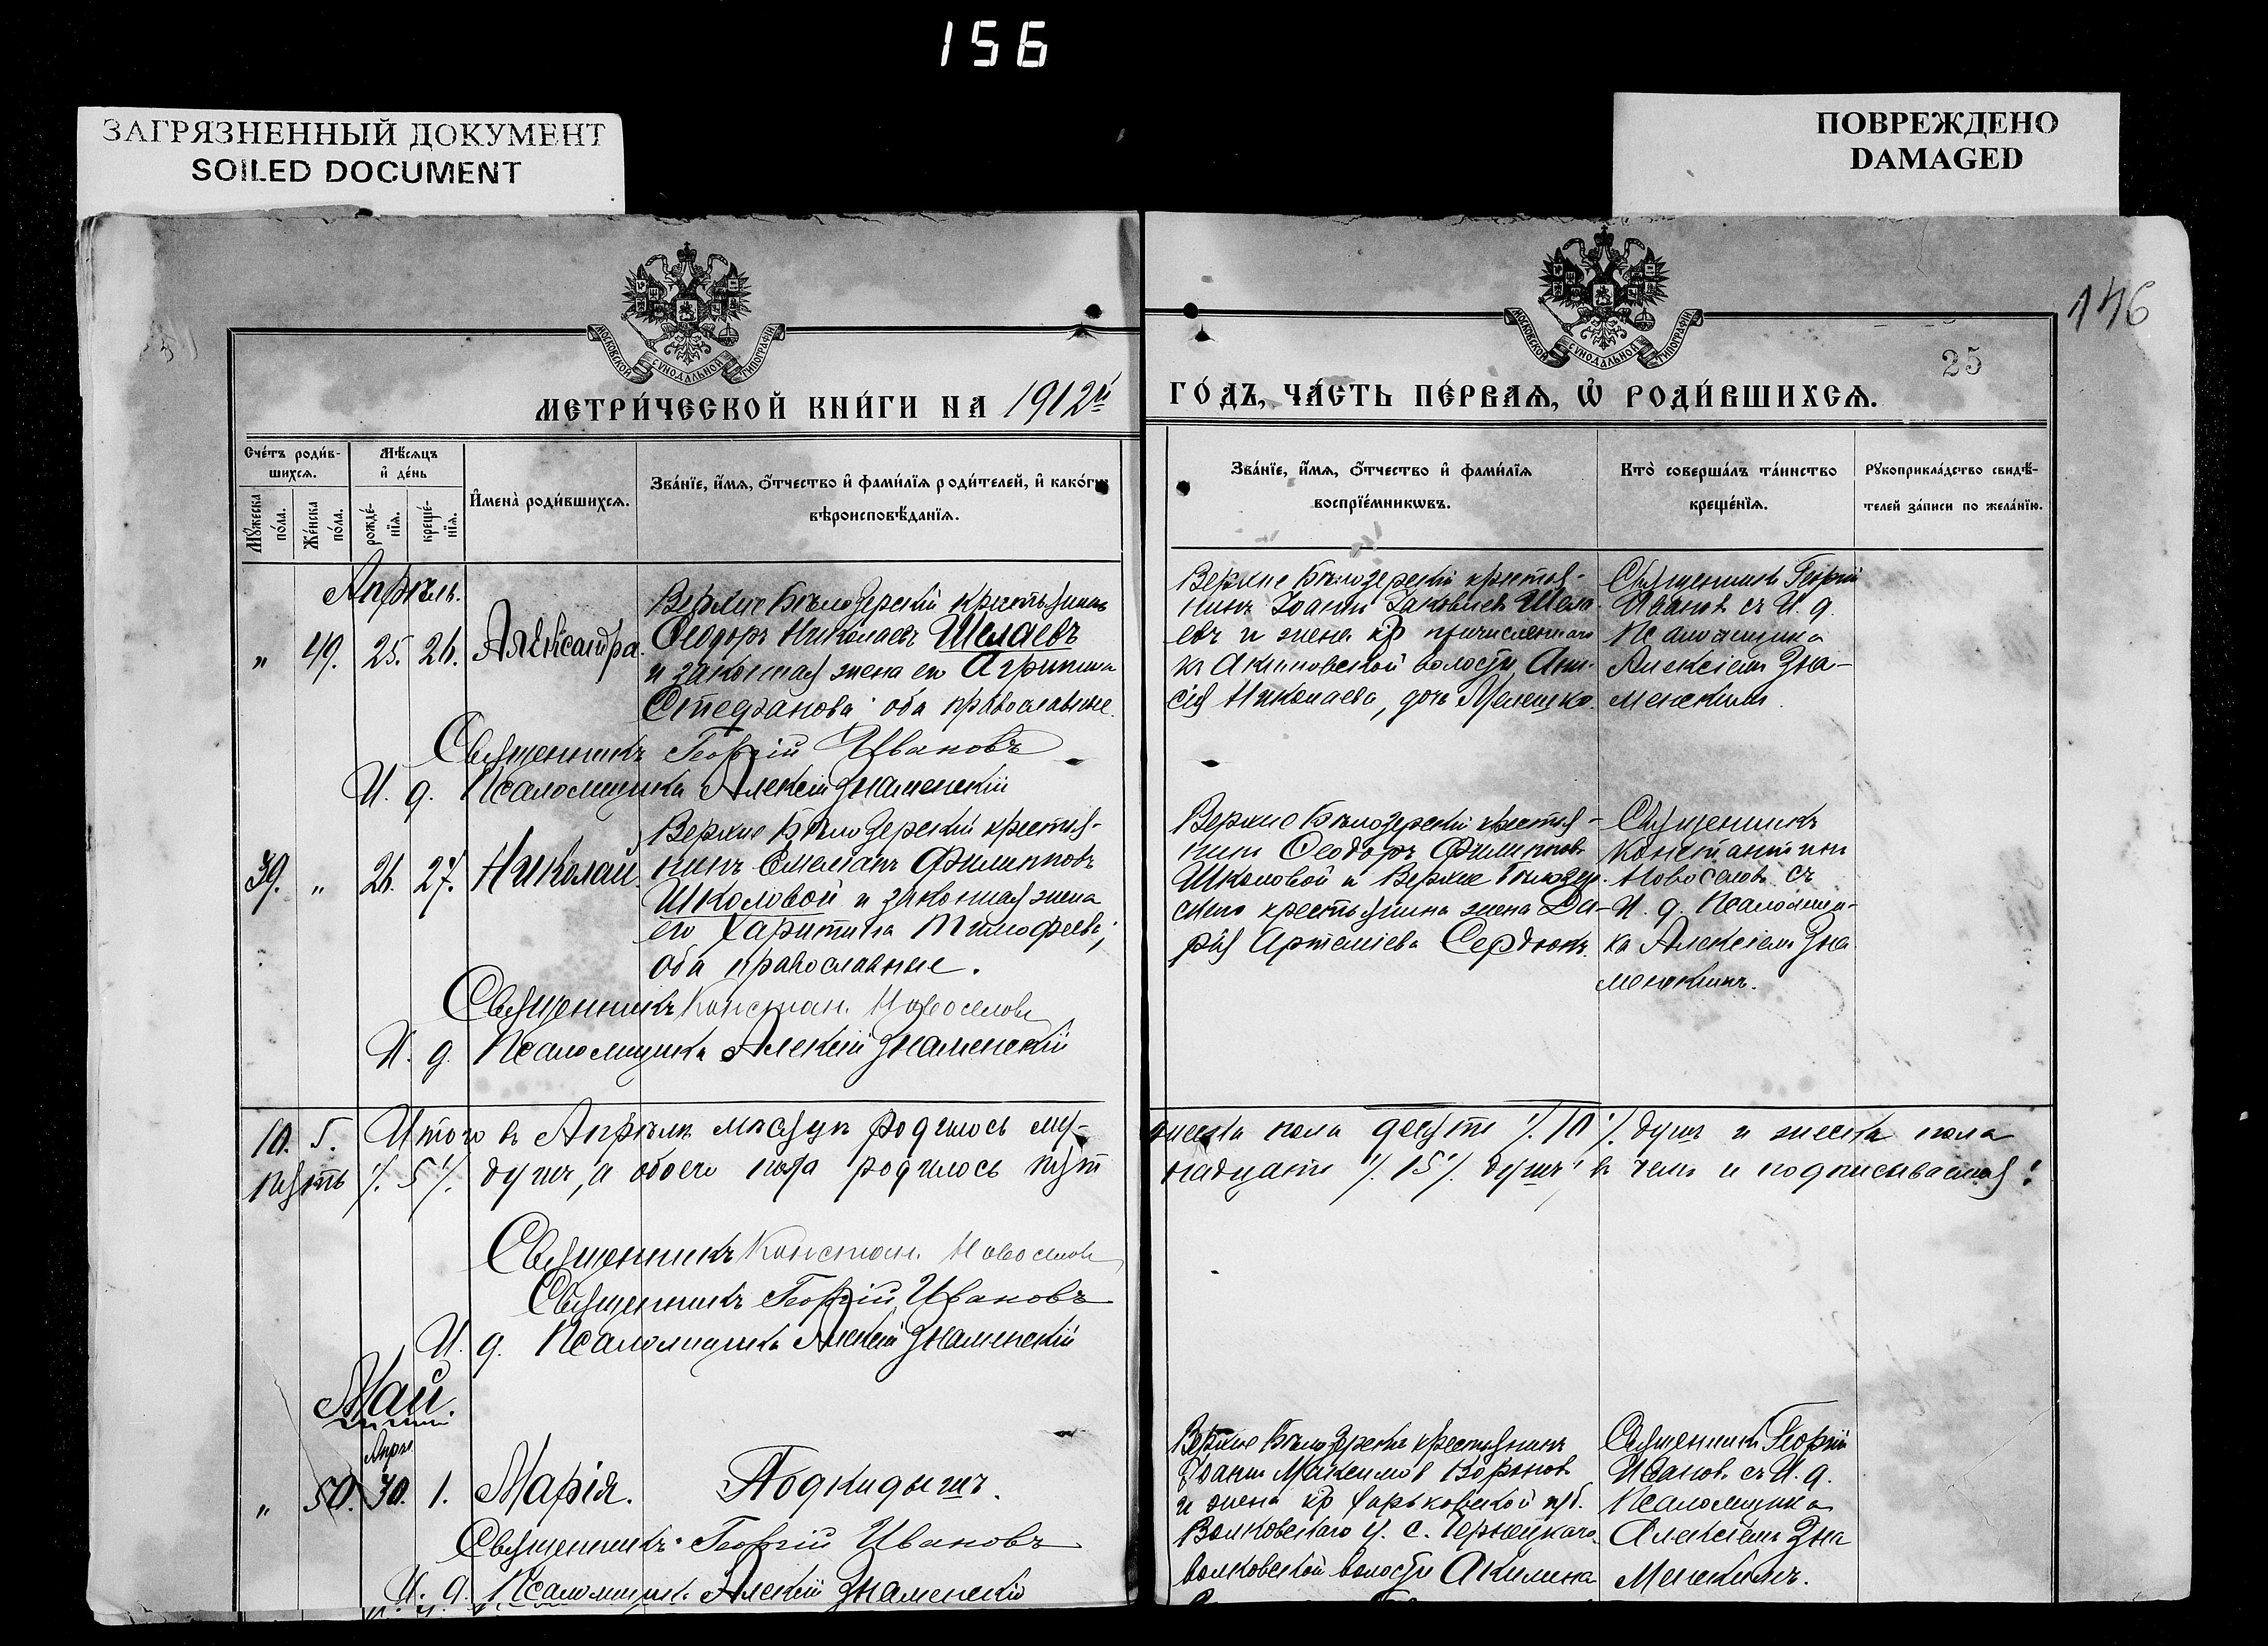 156
ЗАГРЯЗНЕННЫЙ ДОКУМЕНТ
SOILED DOCUMENT
ПОВРЕЖДЕНО
DAMAGED
146
25
МОСКОВСКОЙ СѴНОДАЛЬНОЙ ТИПОГРАФІИ
МОСКОВСКОЙ СѴНОДАЛЬНОЙ ТИПОГРАФІИ
МЕТРИ́ЧЕСКОЙ КНИ́ГИ НА 1912й
ГО́ДЪ, ЧА́СТЬ ПЕ́РВАѦ, Ѡ҆ РОДИ́ВШИХСѦ.
Сче́тъ роди́в-
шихсѧ.
Мꙋ́жеска
по́ла.
Же́нска
по́ла.
Мѣ́сѧцъ
и҆ де́нь
рожде́-
нїѧ.
креще́-
нїѧ.
И҆мена̀ роди́вшихсѧ.
Зва́нїе, и҆́мѧ, ѻ҆́тчество и҆ фами́лїѧ роди́телей, и҆ како́гѡ
вѣроисповѣ́данїѧ.
Зва́нїе, и҆́мѧ, ѻ҆́тчество и҆ фами́лїѧ
воспрїе́мникѡвъ.
Кто̀ соверша́лъ та́инство
креще́нїѧ.
Рꙋкоприкла́дство свидѣ́-
телей за́писи по жела́нїю.
Апрѣль.
" 49. 25. 26. Александра.
Верхне Бѣлозерскій крестьянинъ
Ѳеодоръ Николаевъ Шелаевъ
и законная жена его Агрипина
Стефанова оба православные.
Верхне Бѣлозерскій крестья-
нинъ Іоаннъ Іаковлевъ Шела-
евъ и жена кр причисленнаго
къ Акимовской волости Ани-
сія Николаева, дочь Мелешко.
Священникъ Георгій
Ивановъ съ И. д.
Псаломщика
Алексіемъ Зна-
менскимъ.
Священникъ Георгій Ивановъ
И. д. Псаломщика Алексій Знаменскій
39. " 26. 27. Николай.
Верхне Бѣлозерскій крестья-
нинъ Емеліанъ Филипповъ
Школовой и законная жена
его Харитина Тимофеева;
оба православные.
Верхне Бѣлозерскій крестья-
нинъ Ѳеодоръ Филипповъ
Школовой и Верхне Бѣлозер-
скаго крестьянина жена Да-
рія Артеміева Сердюкъ.
Священникъ
Константинъ
Новоселовъ съ
И. д. Псаломщи-
ка Алексіемъ Зна
менскимъ.
Священникъ Констан. Новоселовъ
И. д. Псаломщика Алексій Знаменскій
10. 5. Итого въ Апрѣлѣ мѣсяцѣ родилось му-
жеска пола десять /.10/. душъ и женска пола
пять /.5/. душъ, а обоего пола родилось пят
надцать /.15/. душъ; въ чемъ и подписываемся:
Священникъ Констан. Новоселовъ
Священникъ Георгій Ивановъ
И. д. Псаломщика Алексій Знаменскій
Май.
Апрѣ.
" 50. 30. 1. Марія. Подкидышъ.
Верхне Бѣлозерскій крестьянинъ
Іоаннъ Максимовъ Вороновъ
и жена кр Харьковской губ.
Волковскаго у. с.
волковской волости Акилина
Священникъ Георгій
Ивановъ съ И. д.
Псаломщика
Алексіемъ Зна
менскимъ.
Священникъ Георгій Ивановъ
И. д. Псаломщика Алексій Знаменскій